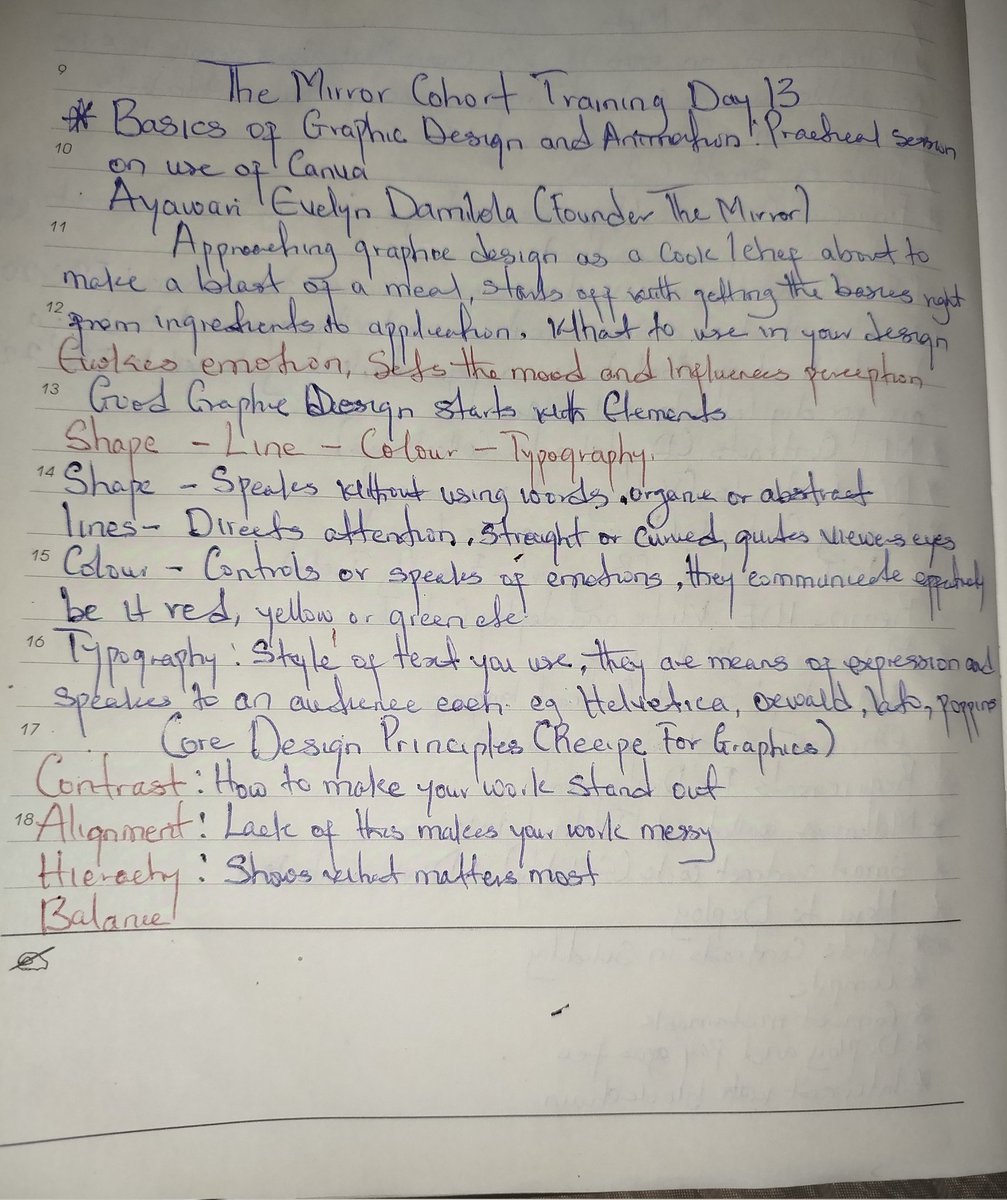 9
The Mirror Cohort Training Day 13
* Basics of Graphic Design and Animation: Practical session
10
on use of Canva
Ayawari Evelyn Damilola (Founder The Mirror)
11
Approaching graphic design as a Cook/chef about to
make a blast of a meal, starts off with getting the basics right
12
from ingredients to application. What to use in your design
Evokes emotion, Sets the mood and Influences perception
13
Good Graphic Design starts with Elements
Shape - Line - Colour - Typography.
14
Shape - Speaks without using words, organic or abstract
lines - Directs attention, straight or curved, guides viewers eyes
15
Colour - Controls or speaks of emotions, they communicate effectively
be it red, yellow or green etc
16
Typography: Style of text you use, they are means of expression and
speaks to an audience each. eg Helvetica, oswald, lato, poppins
17
Core Design Principles (Recipe For Graphics)
Contrast: How to make your work stand out
18
Alignment: Lack of this makes your work messy
Hierachy: Shows what matters most
Balance